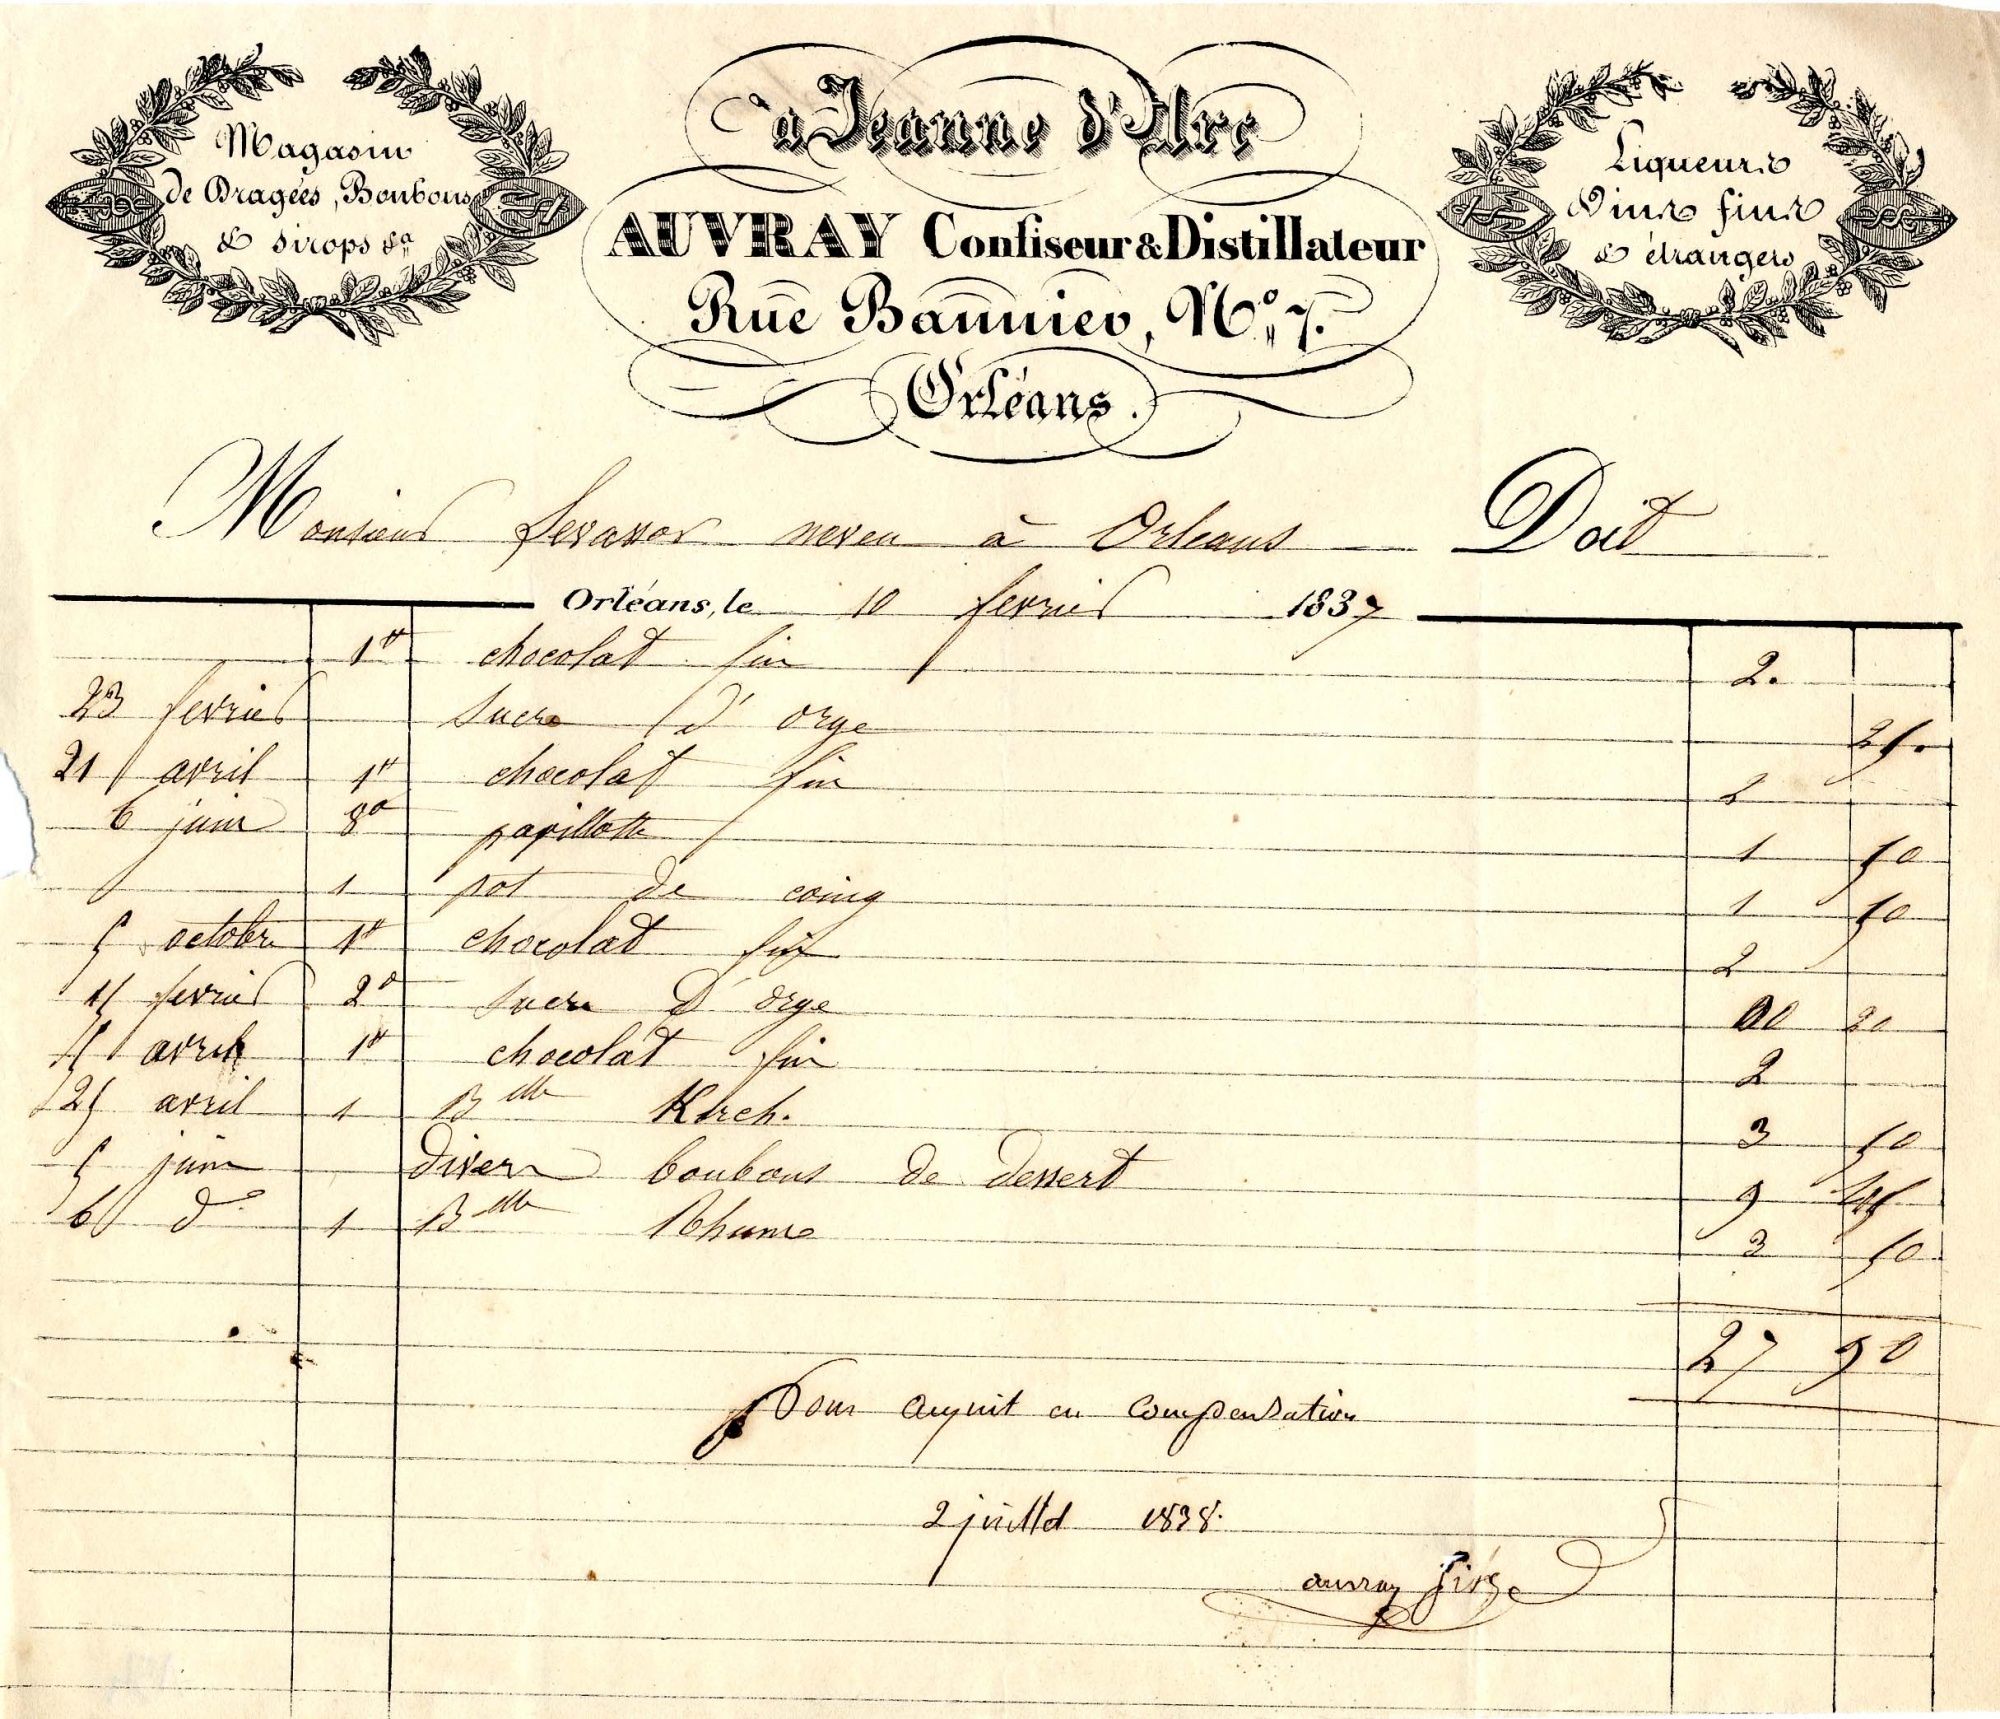 à Jeanne d'Arc
Magasin
de Dragées, Bonbons
& sirops &a
AUVRAY Confiseur & Distillateur
Rue Bannier, No. 7.
Orléans.
Liqueurs
Vins fins
& étrangers
Monsieur Levassor neveu à Orleans Doit
Orléans, le 10 fevrier 1837
1tt chocolat fin 2.
23 fevrier sucre d'orge 25.
21 avril 1tt chocolat fin 2
6 juin 8o papillotte 1 50
1 pot de coing 1 50
5 octobre 1tt chocolat fin 2
15 fevrier 2o sucre d'orge 00 20
15 avril 1tt chocolat fin 2
25 avril 1 Blle Kirch. 3 50
5 juin divers bonbons de dessert 9 45
6 do 1 Blle Rhum 3 50
27 90
Pour acquit en compensation
2 juillet 1838.
auvray